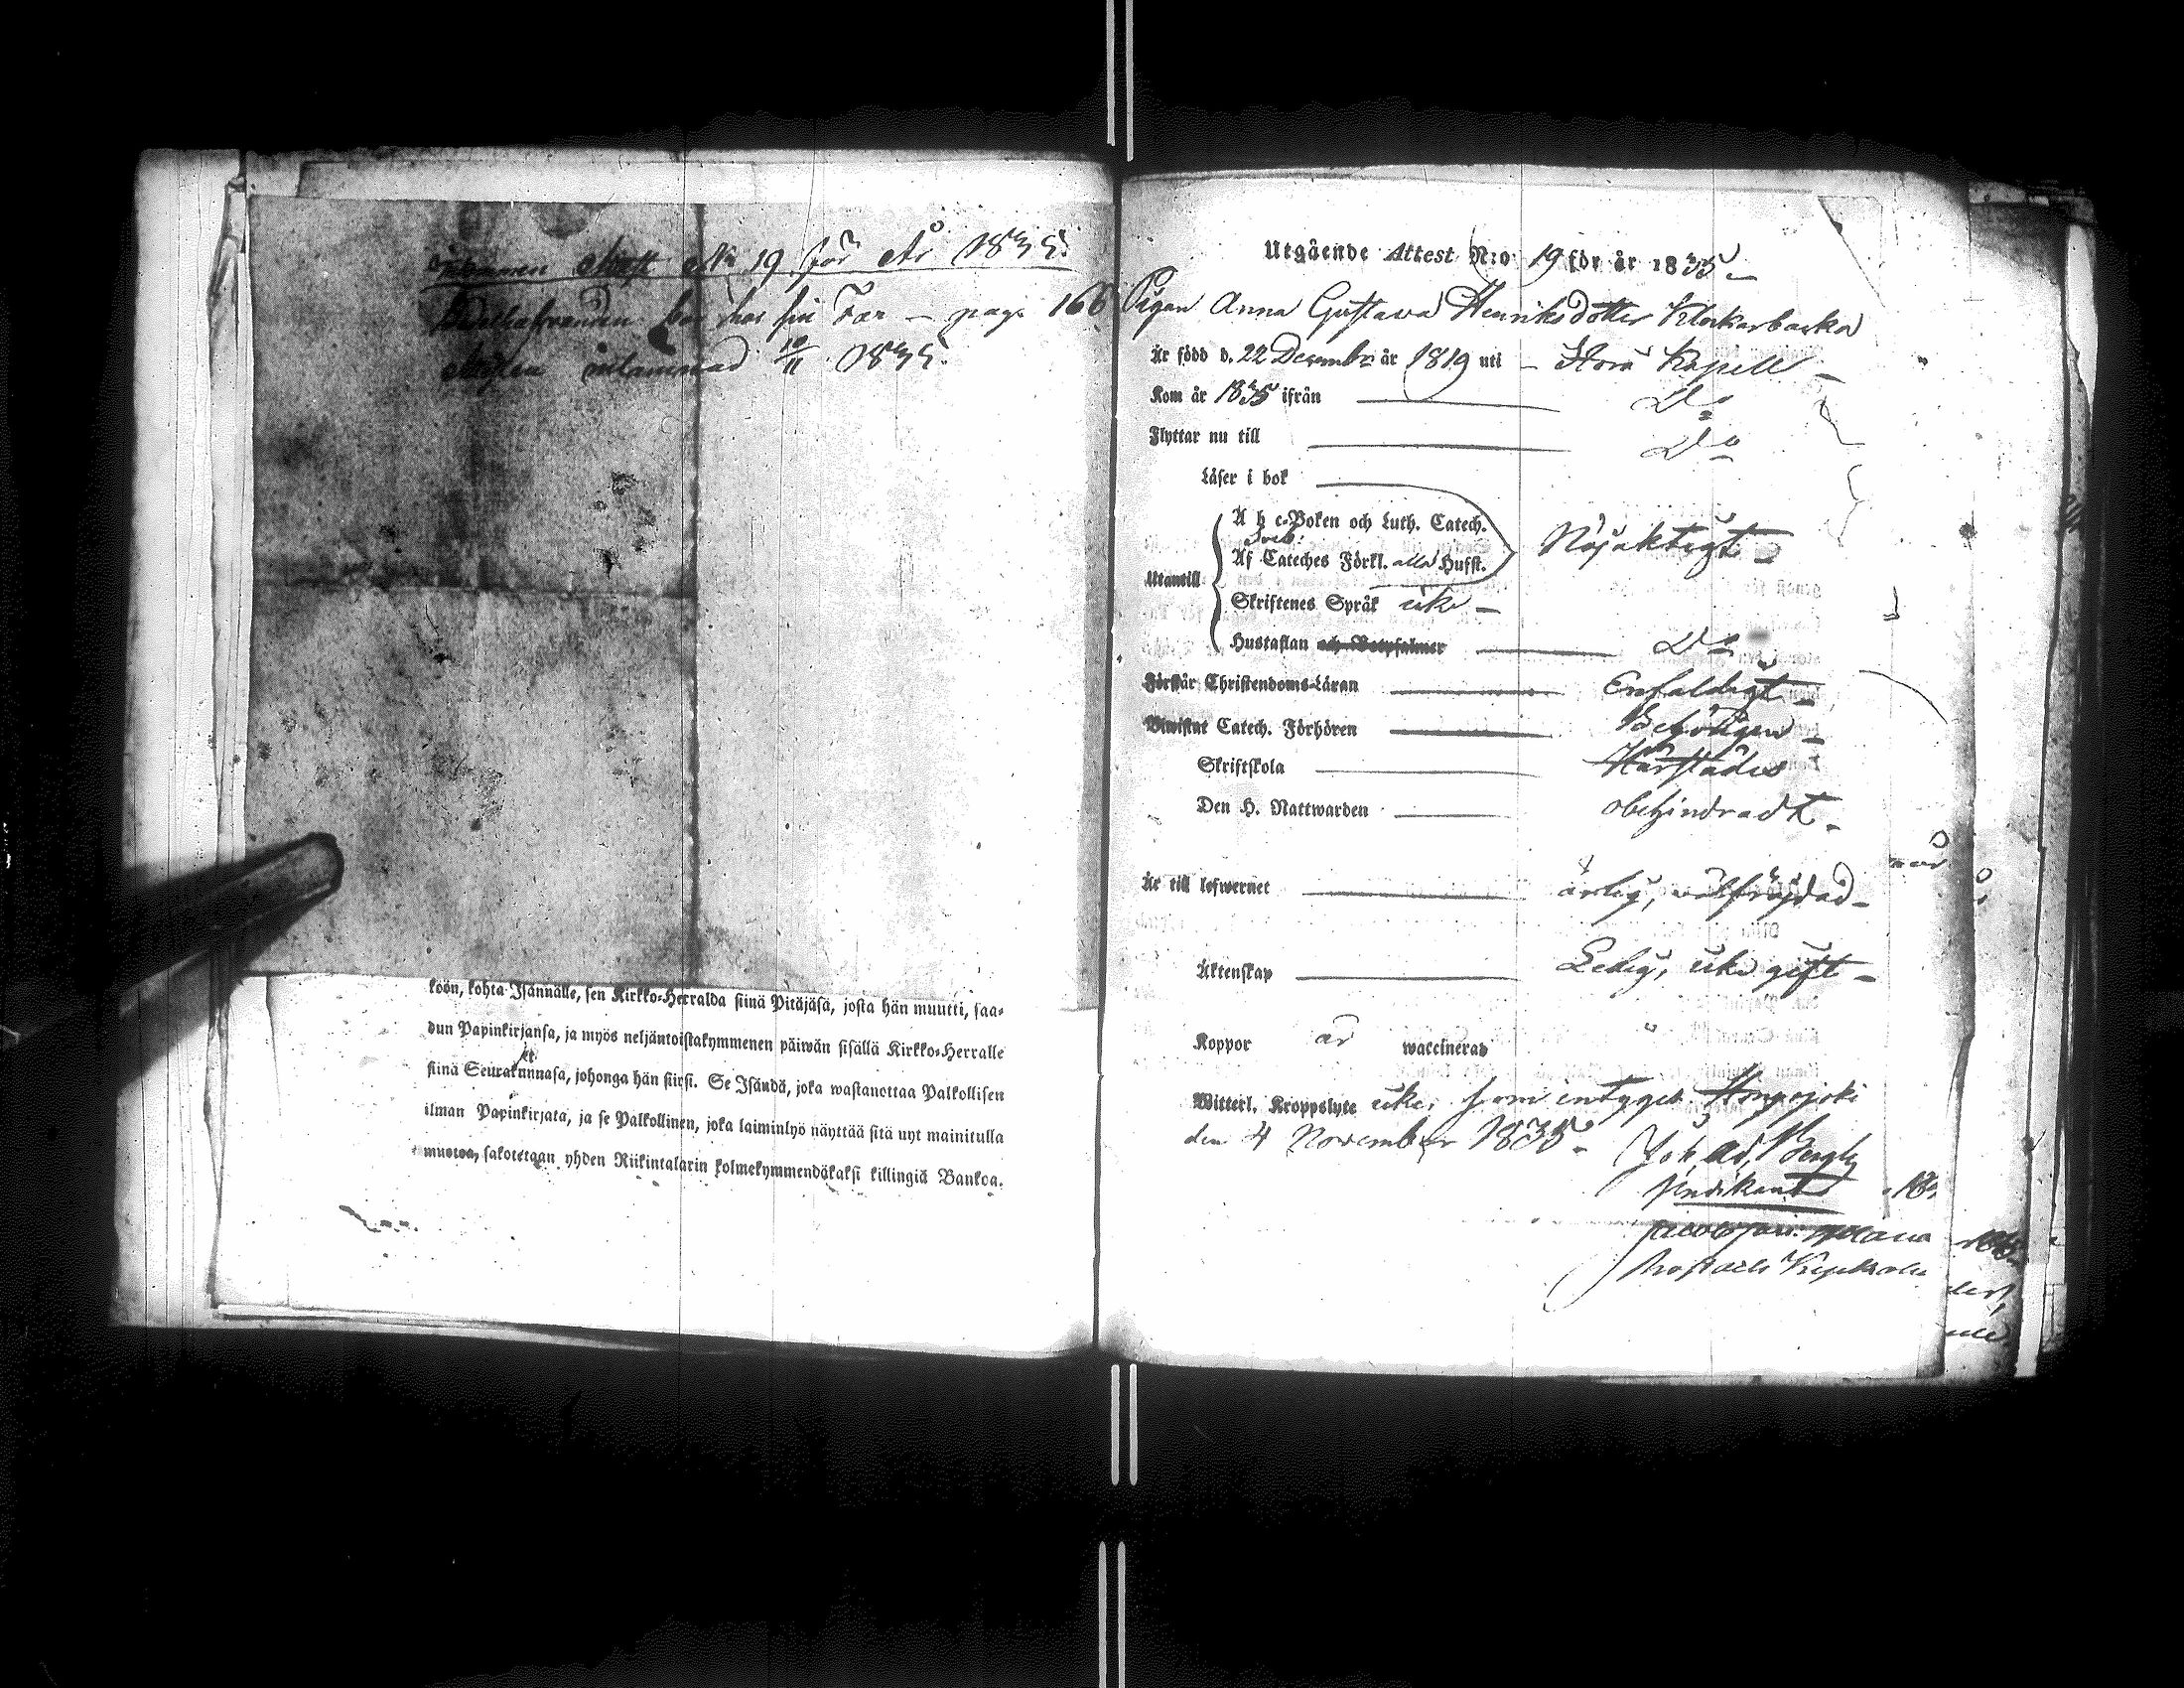 inkommen Attest No 19 för År 1835.
bor hos sin Far – pag. 166
Attesten inlämnad 10/11 1835.
köön, kohta Isännälle, sen Kirkko-Herralda siinä Pitäjäsä, josta hän muutti, saa-
dun Papinkirjansa, ja myös neljäntoistakymmenen päiwän sisällä Kirkko-Herralle
siinä Seurakunnasa, johonga hän siirsi. Se Isändä, joka wastanottaa Palkollisen
ilman Papinkirjata, ja se Palkollinen, joka laiminlyö näyttää sitä nyt mainitulla
muotoa, sakotetaan yhden Riikintalarin kolmekymmendäkaksi killingiä Bankoa.
Utgående Attest N:o 19 för år 1835 –
Pigan Anna Gustava Henriksdotter Klockarbacka
Är född d. 22 Decembr år 1819 uti – Storå Kapell –
Kom år 1835 ifrån D:o
Flyttar nu till D:o
Läser i bok
A b c-Boken och Luth. Catech.
Sveb.
Utantill Af Cateches Förkl. alla Husst. Nöjaktigt –
Skriftenes Språk icke –
Hustaflan och Botpsalmer D:o
Förstår Christendoms-Läran Enfaldigt –
Biwistat Catech. Förhören Behörigen –
Skriftskola Härstädes
Den H. Nattwarden obehindradt –
Är till lefwernet ärlig, välfräjdad –
Äktenskap Ledig, icke gift –
Koppor är waccinerad
Witterl. Kroppslyte icke, som intygar Hongojoki
den 4 November 1835 –
Joh. Ad. Bergh